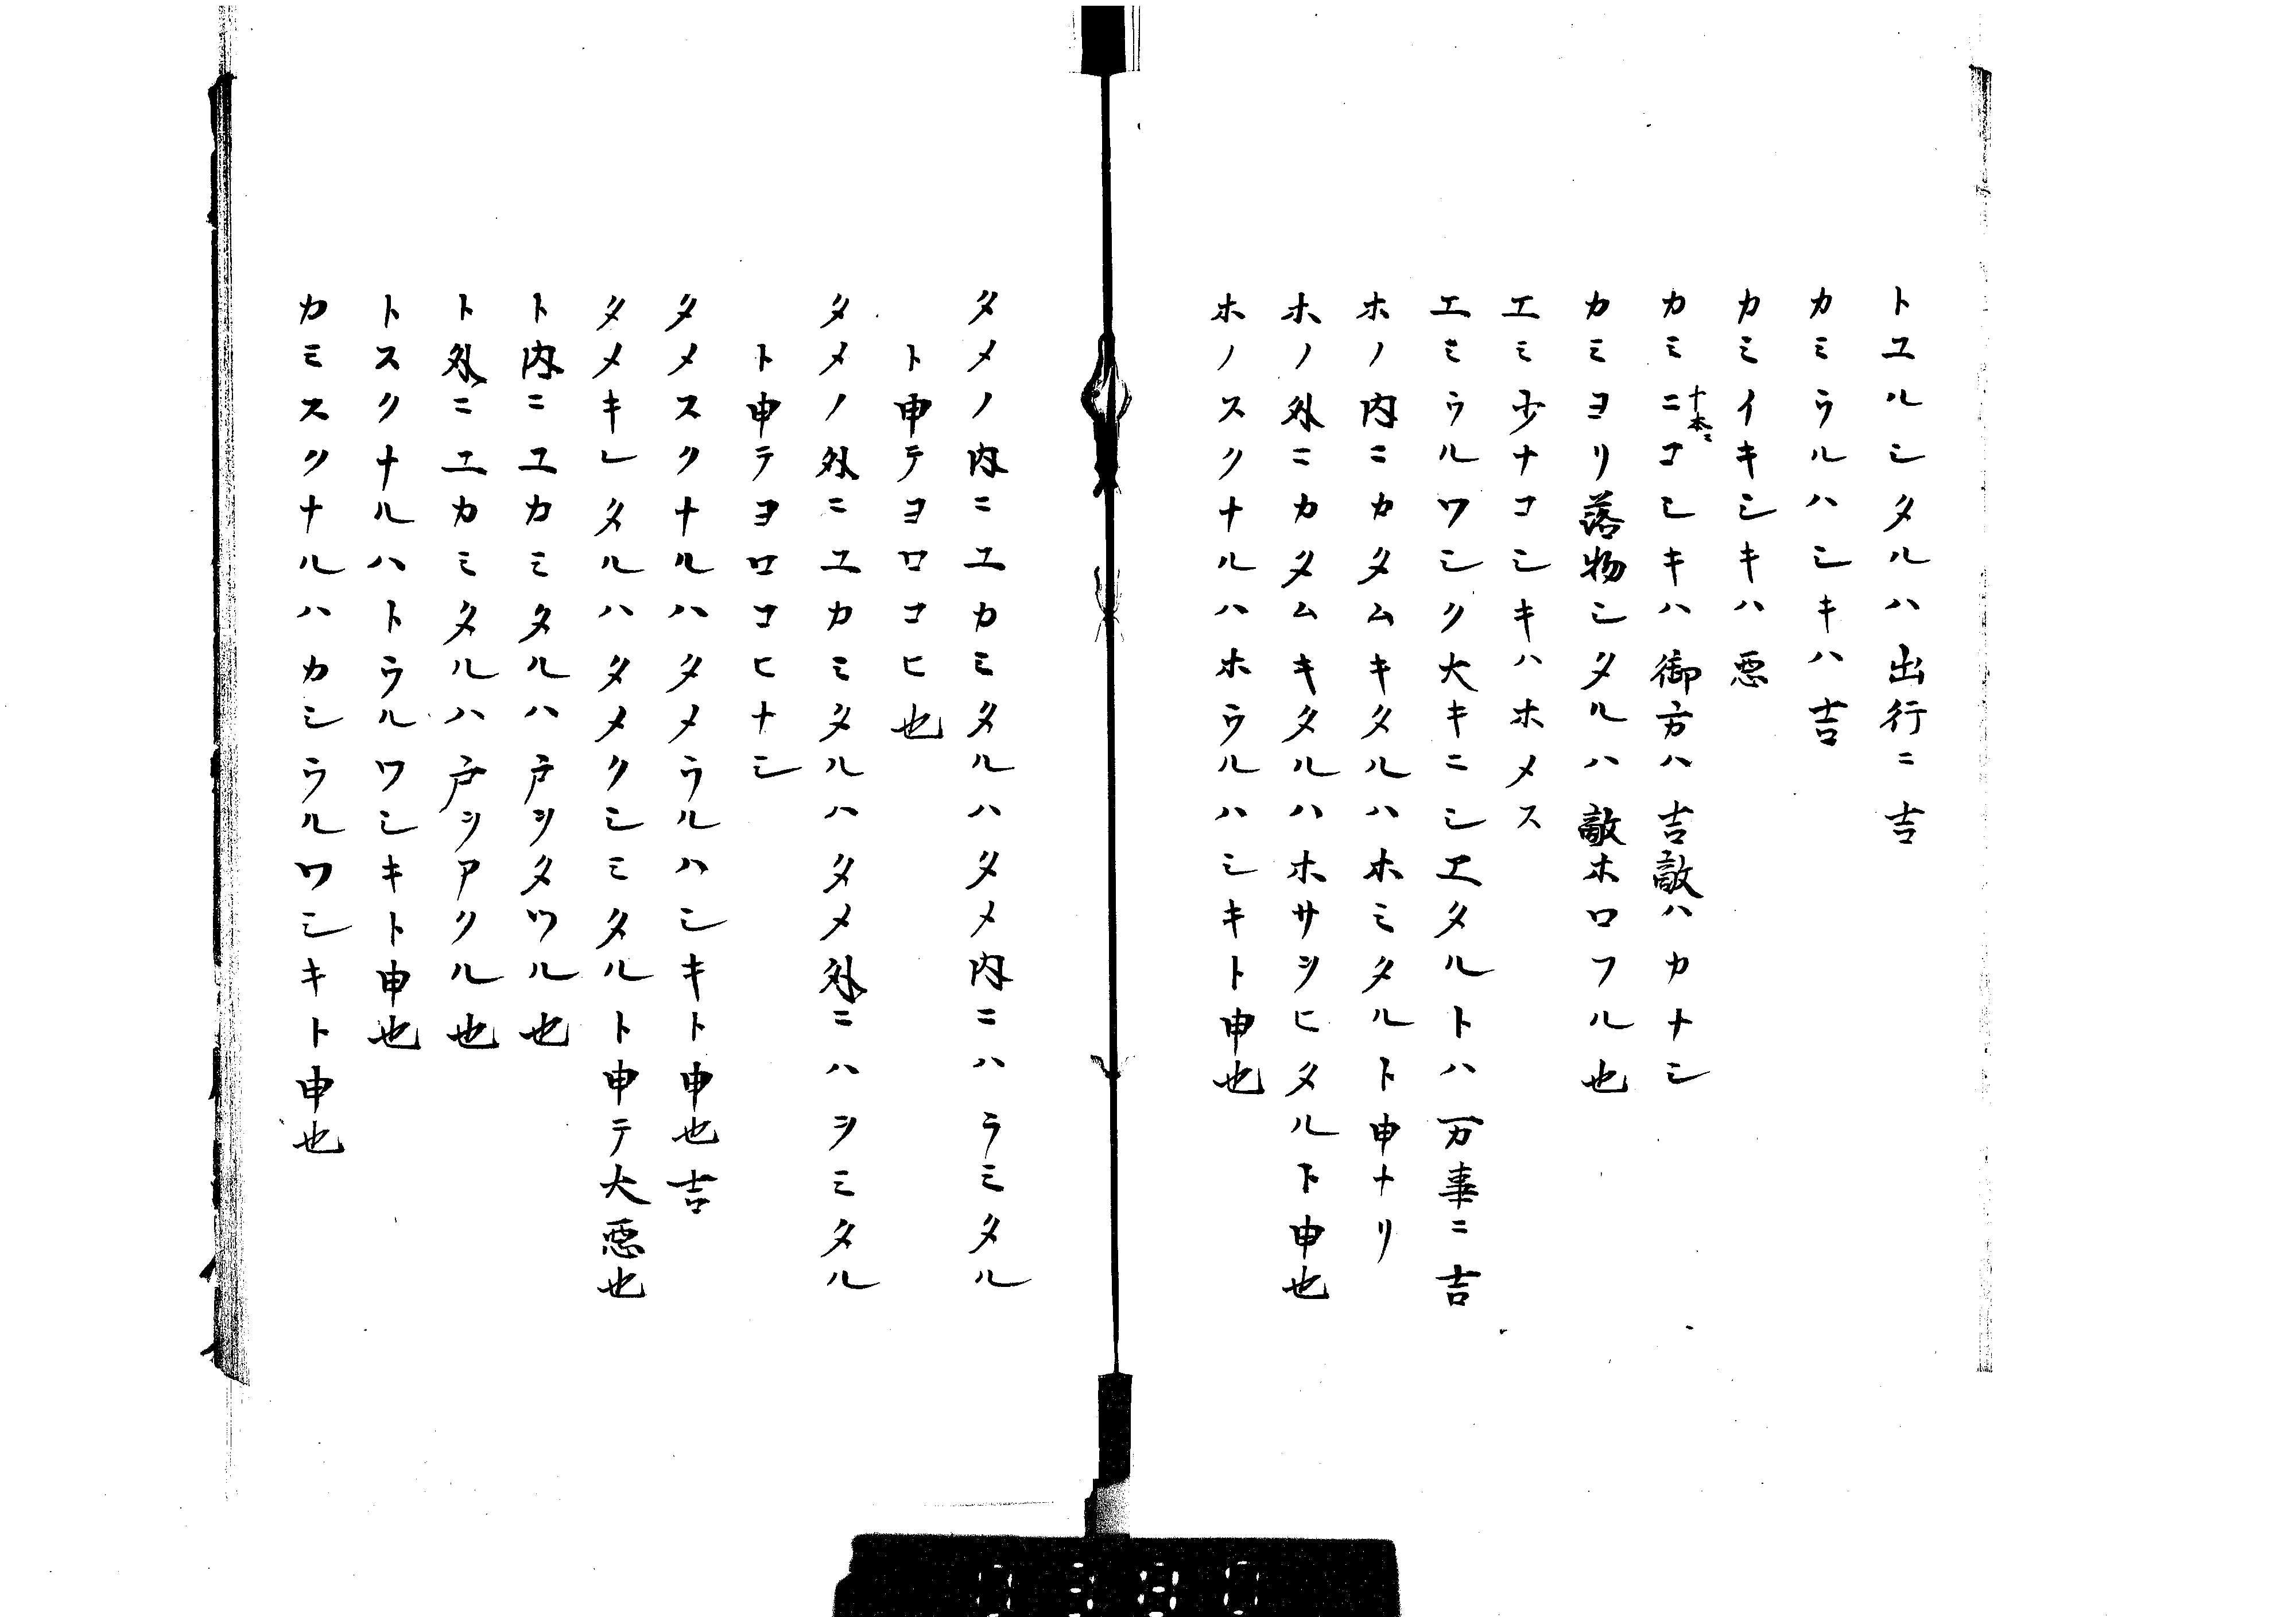 トユルシタルハ出行ニ吉
カミウルハシキハ吉
カミイキシキハ悪
カミニコシキハ御方ハ吉敵ハカナシ
カミヨリ落物シタルハ敵ホロフル也
エミ少ナコシキハホメス
エミウルワシク大キニシヱタルトハ万事ニ吉
ホノ内ニカタムキタルハホミタルト申ナリ
ホノ外ニカタムキタルハホサシヒタルト申也
ホノスクナルハホウルハシキト申也
タメノ内ニユカミタルハタメ内ニハラミタル
ト申テヨロコヒ也
タメノ外ニユカミタルハタメ外ニハヲミタル
ト申テヨロコヒナシ
タメスクナルハタメウルハシキト申也吉
タメキレタルハタメクシミタルト申テ大悪也
ト内ニユカミタルハ戸ヲタツル也
ト外ニユカミタルハ戸ヲアクル也
トスクナルハトウルワシキト申也
カミスクナルハカシラルワシキト申也